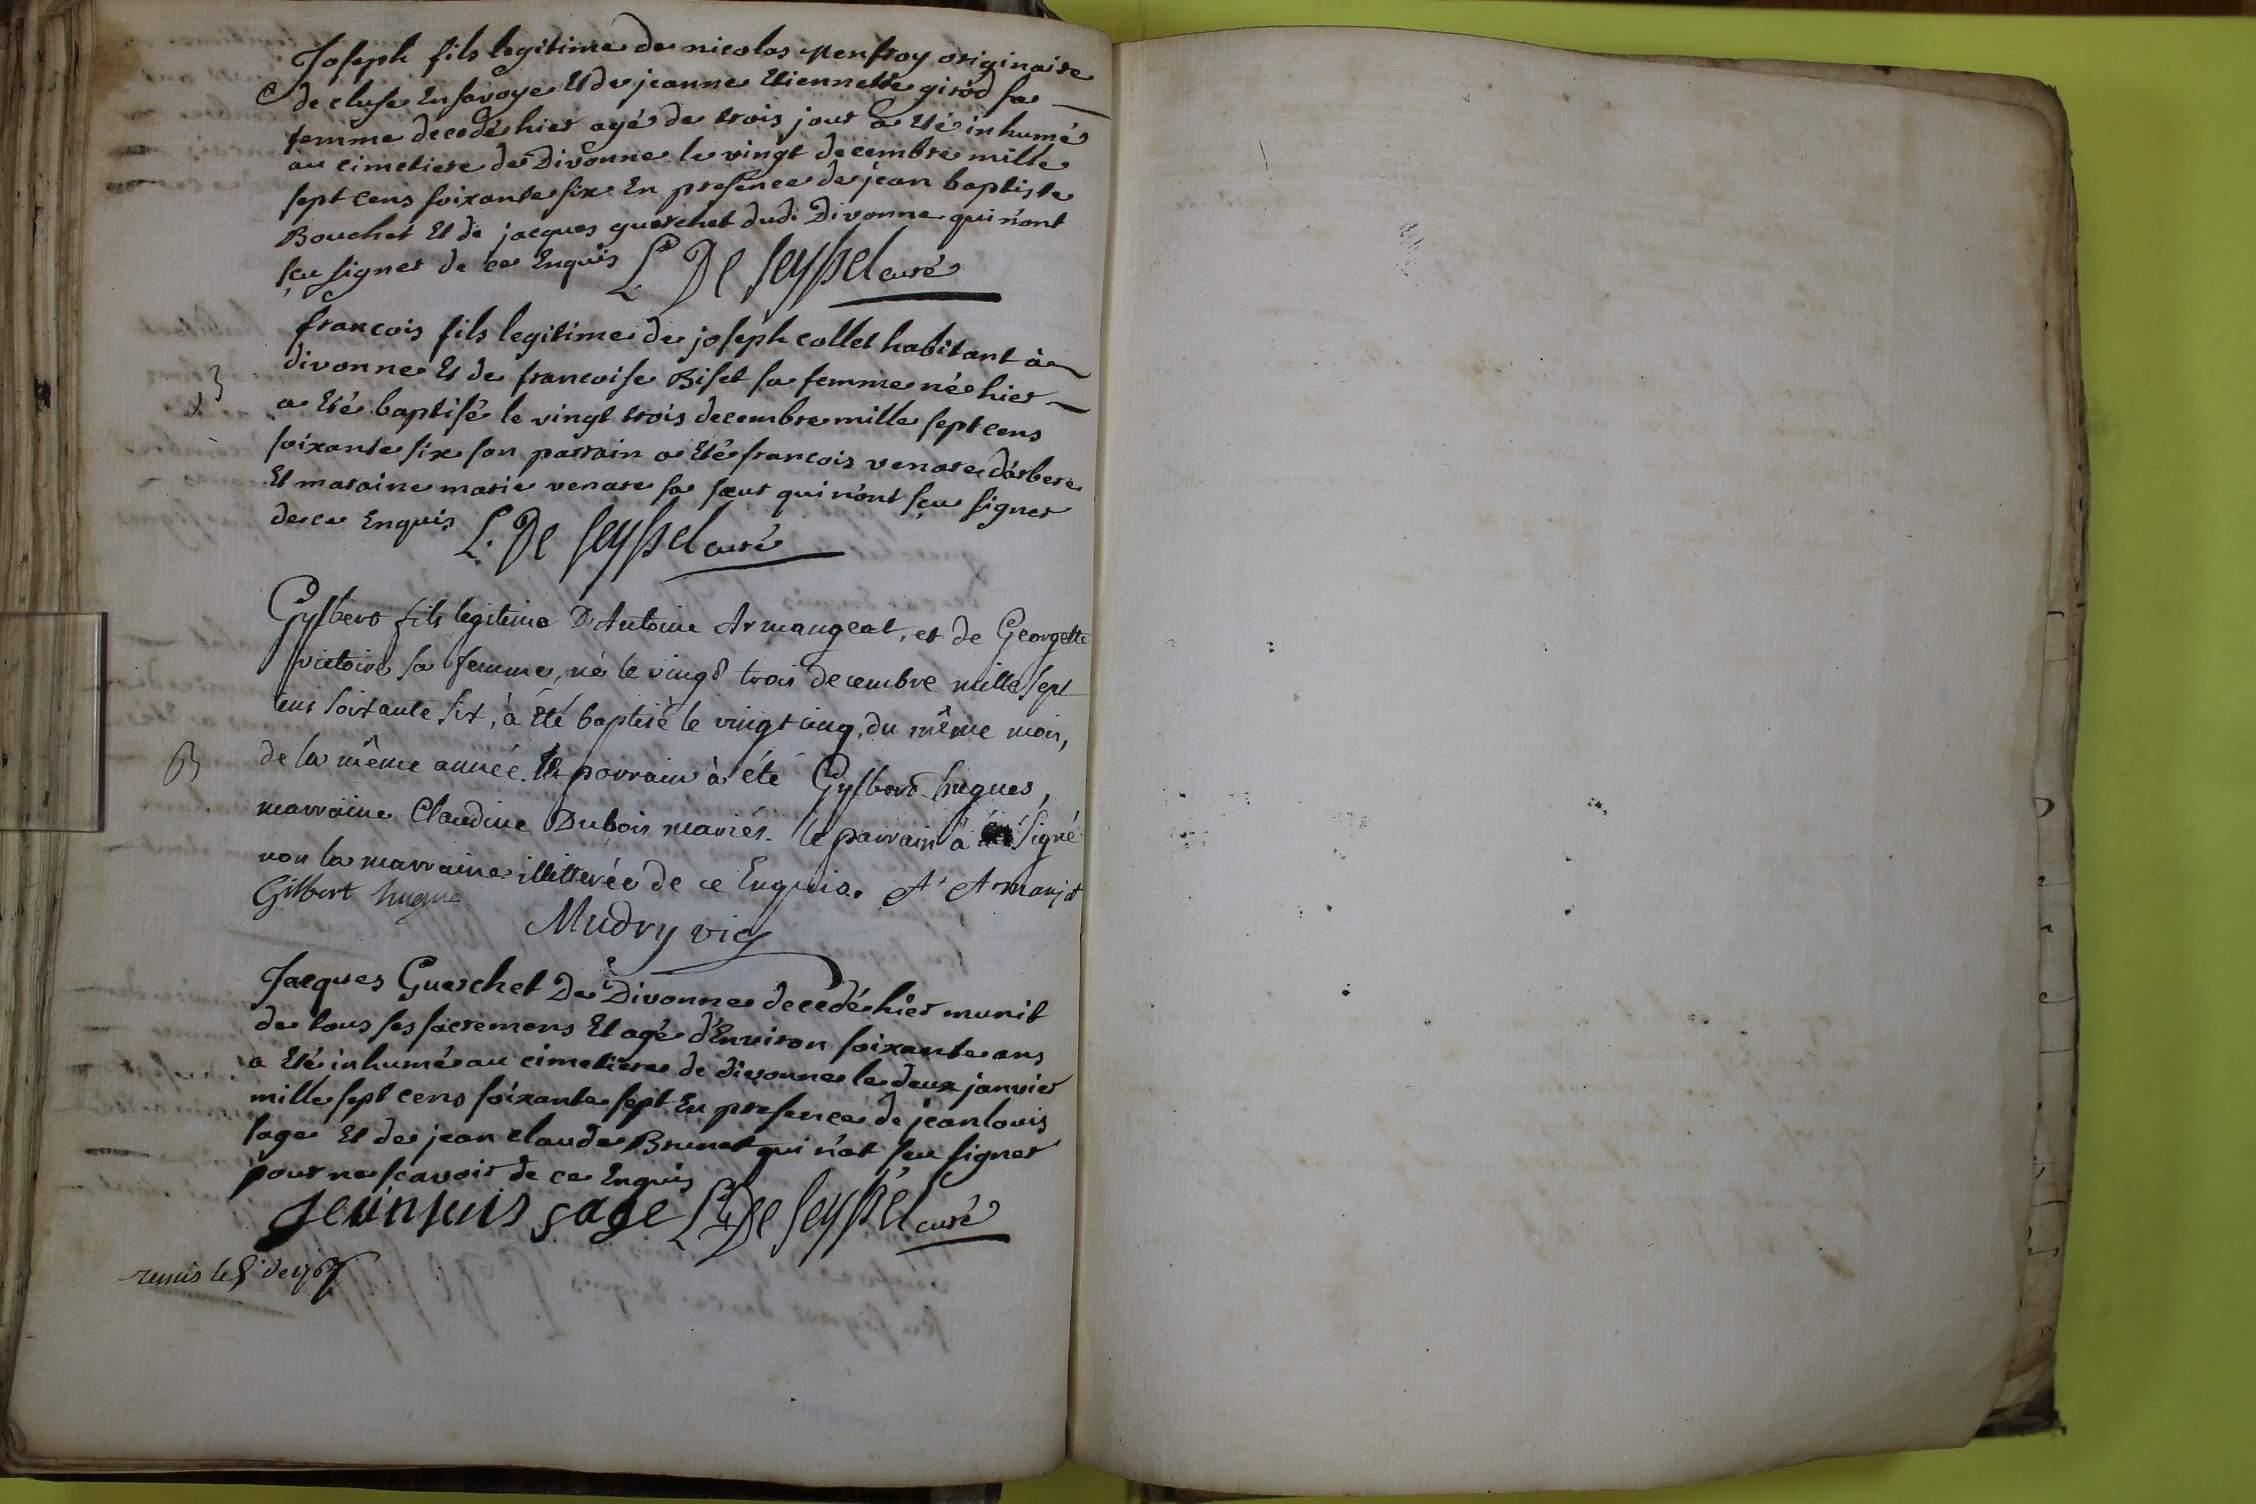 Joseph fils legitime de nicolas penfroy originaire
de cluse En savoye Et de jeanne Etiennette girod sa
femme decedé hier agé de trois jour a Eté inhumé
au cimetiere de Divonne le vingt decembre mille
sept cens soixante six En presence de jean baptiste
Bouchet Et de jacques guerchet dud. Divonne qui n'ont
sçu signer de ce Enquis L. De Seyssel curé
francois fils legitime de joseph collet habitant à
divonne Et de francoise Biset sa femme né hier
B
a Eté baptisé le vingt trois decembre mille sept cens
soixante six son parrain a Eté francois venare d'arbere
Et maraine marie venare sa sœur qui n'ont sçu signer
de ce Enquis L. De Seyssel curé
Gylbert fils legitime D'Antoine Armangeat, et de Georgette
victoire sa femme, né le vingt trois decembre mille sept
cens soixante six, à été baptisé le vingt cinq, du même mois,
B
de la même année. le parrain à été Gylbert hugues,
marraine Claudine Dubois mariés. le parrain à signé
non la marraine illitterée de ce Enquis. At Armanjat
Gilbert hugue
Mudry vic
Jacques Guerchet De Divonne decedé hier munit
de tous ses sacremens Et agé d'Environ soixante ans
a Eté inhumé au cimetiere de divonne le deux janvier
mille sept cens soixante sept En presence de jean louis
sage Et de jean claude Brunet qui n'at sçu signer
pour ne scavoir de ce Enquis
Jeanluis sage L. De Seyssel curé
remis le 8 de 1767